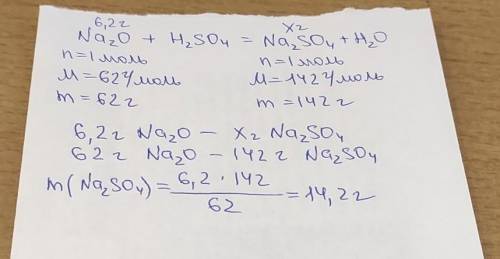 6,2г хг
Na₂O + H₂SO₄ = Na₂SO₄ + H₂O
n = 1 моль n = 1 моль
M = 62 г/моль M = 142 г/моль
m = 62 г m = 142 г
6,2 г Na₂O – хг Na₂SO₄
62 г Na₂O – 142 г Na₂SO₄
m(Na₂SO₄) = 6,2 · 142 / 62 = 14,2 г